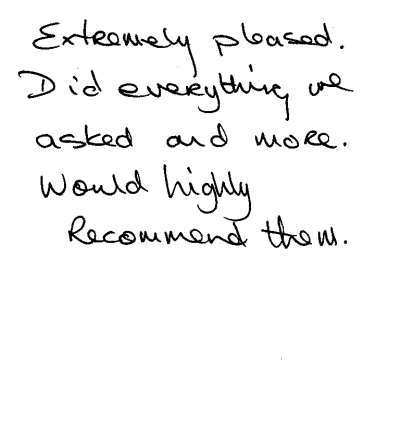 Extremely pleased.
Did everything we
asked and more.
Would highly
Recommend them.